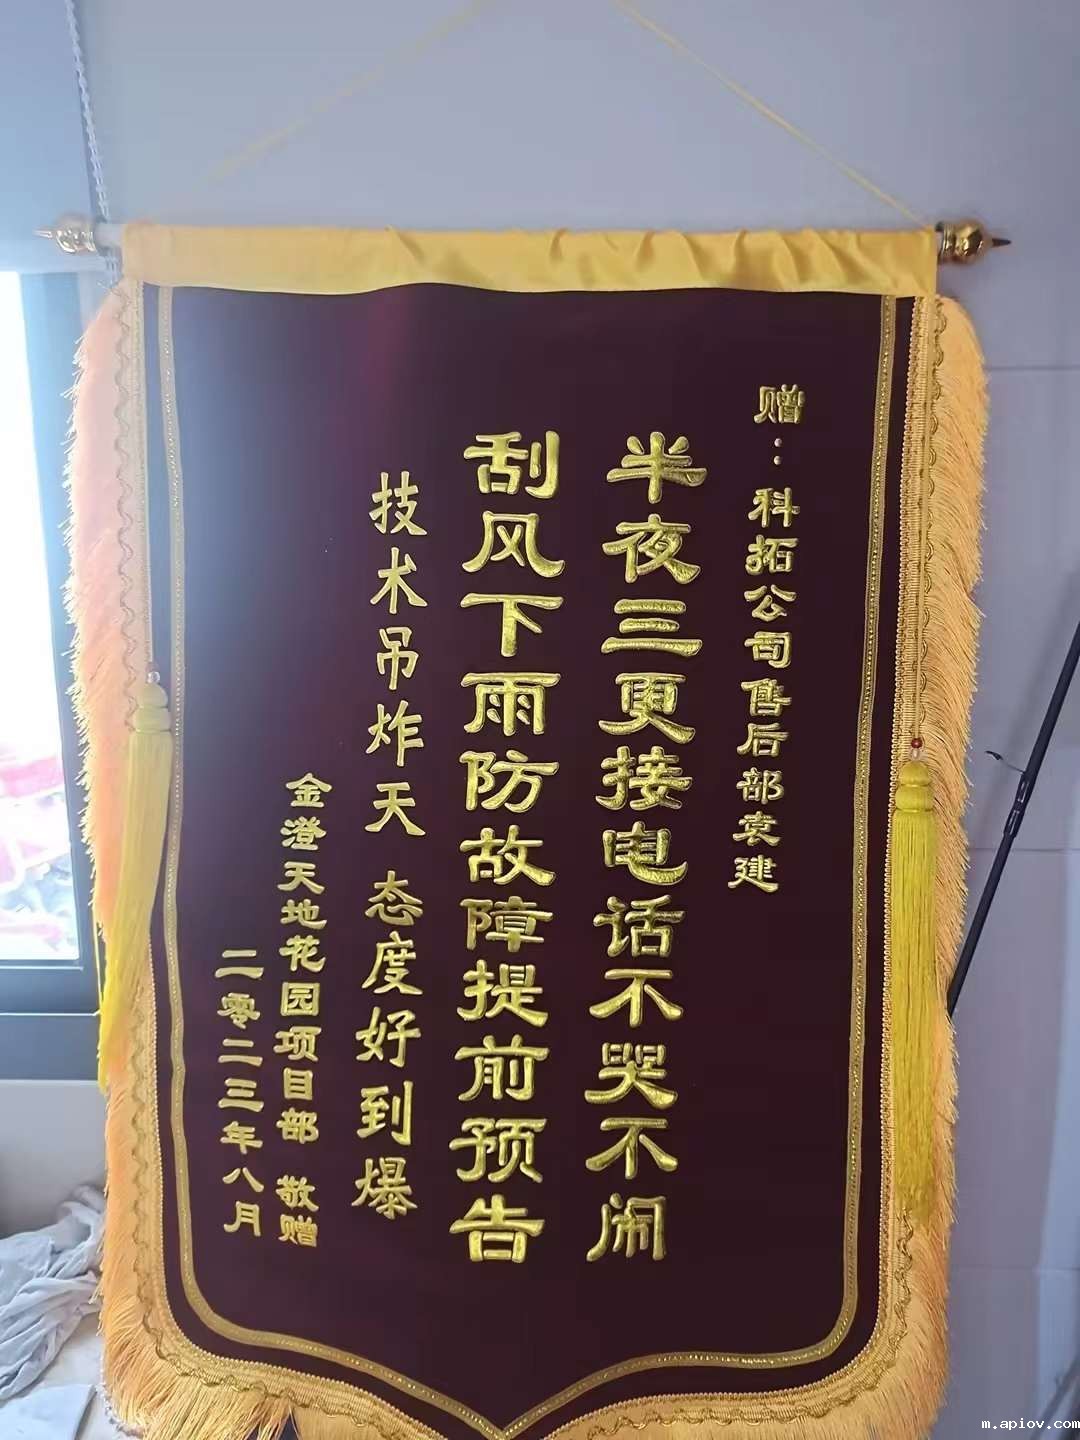 赠：科拓公司售后部袁建
半夜三更接电话不哭不闹
刮风下雨防故障提前预告
技术吊炸天 态度好到爆
金澄天地花园项目部 敬赠
二零二三年八月
m.apiov.com